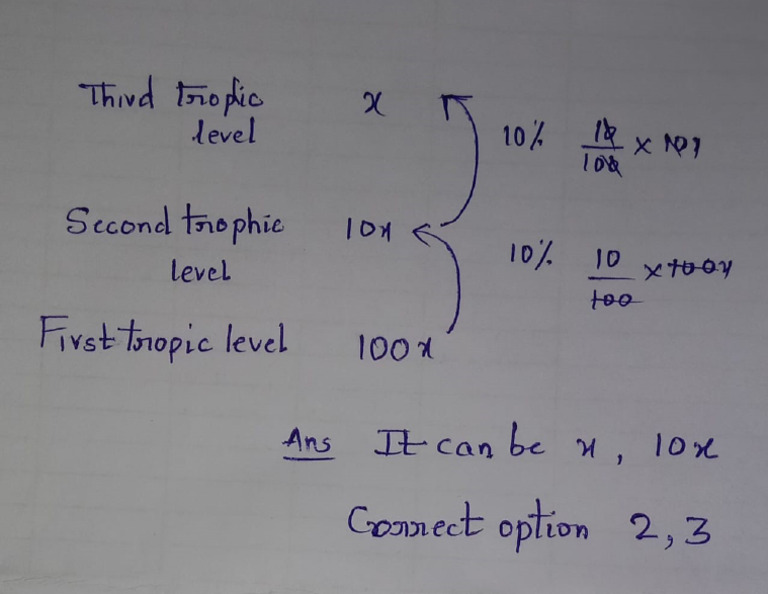 Third tropic x
level
10% 10/100 × 10x
Second trophic 10x
level
10% 10/100 × 100x
First tropic level 100x
Ans It can be x, 10x
Correct option 2,3